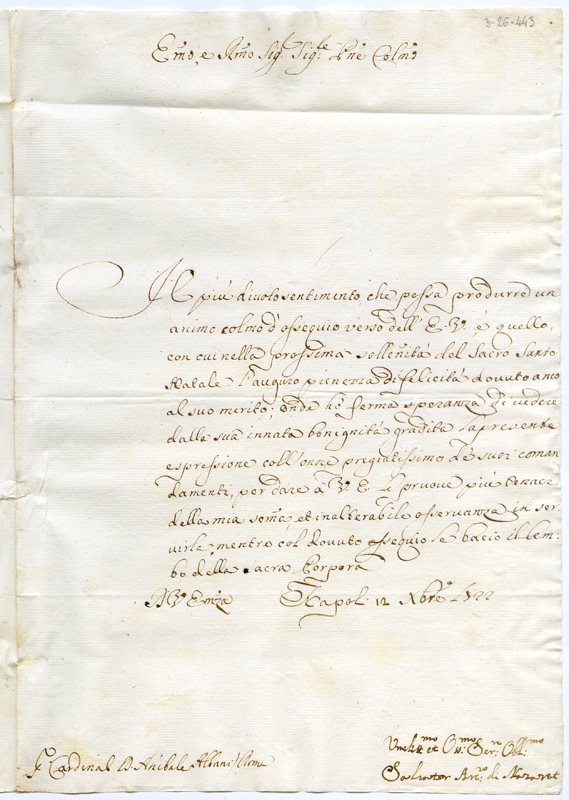 3-26-443
Emo, e Rmo Sig.r Sig.re Pne Colmo
Il più divoto sentimento, che possa produrre un
animo colmo d'ossequio verso dell' E. V. è quello,
con cui nella prossima sollennità del Sacro Santo
Natale l'auguro pienezza di felicità dovuto anco
al suo merito; onde hò ferma speranza di vedere
dalla sua innata benignità gradita la presente
espressione coll' onore pregiatissimo de suoi coman
damenti, per dare à V. E. le pruove più tenace
della mia som̃a, et inalterabile osservanza in ser
virla; mentre col dovuto ossequio le bacio il lem-
bo della sacra Porpora
D V. Emza Napol. 12 Xbre 1722
Sr Cardinal D Anibale Albani / Roma
Umiliss.mo et Oss.mo Ser.re Obl.mo
Salvator Arc.vo di Nazaret